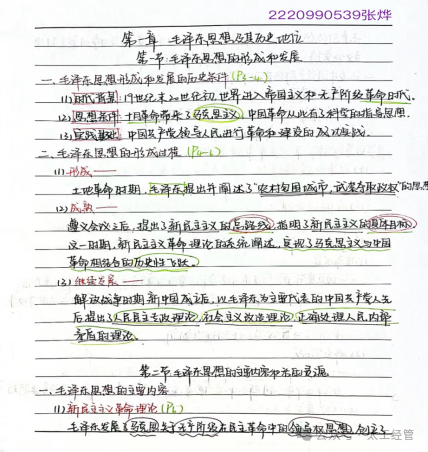 2220990539张烨
第一章 毛泽东思想及其历史地位
第一节 毛泽东思想的形成和发展
一、毛泽东思想形成和发展的历史条件(P2-4)
(1)时代背景:19世纪末20世纪初,世界进入帝国主义和无产阶级革命时代.
(2)思想条件:十月革命带来了马克思主义,中国革命从此有了科学的指导思想.
(3)实践基础:中国共产党领导人民进行革命和建设的成功实践.
二、毛泽东思想的形成过程(P4-6)
(1)形成——
土地革命时期,毛泽东提出并阐述了"农村包围城市,武装夺取政权"的思想
(2)成熟——
遵义会议之后,提出了新民主主义的总路线,指明了新民主主义的具体目标,
这一时期,新民主主义革命理论的系统阐述,实现了马克思主义与中国
革命相结合的历史性飞跃.
(3)继续发展——
解放战争时期和新中国成立后,以毛泽东为主要代表的中国共产党人先
后提出了人民民主专政理论,社会主义改造理论,正确处理人民内部
矛盾的理论.
第二节 毛泽东思想的主要内容和活的灵魂
一、毛泽东思想的主要内容
(1)新民主主义革命理论
毛泽东发展了马克思关于无产阶级在民主革命中的领导权思想,创立了
公众号·太工经管